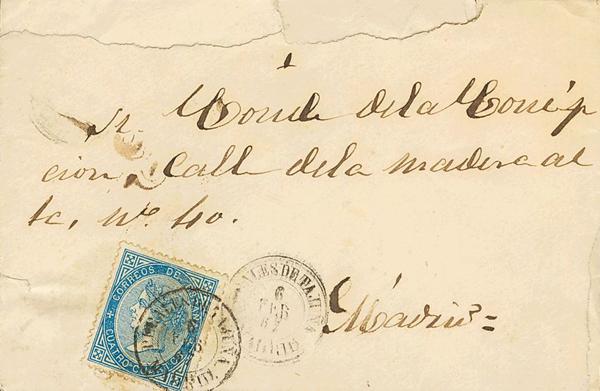 Sr. Conde de la Concép
cion, Calle de la madera al
ta, nº 40.
Mádrid=
CORREOS DE
CUATRO
6
FEB
67